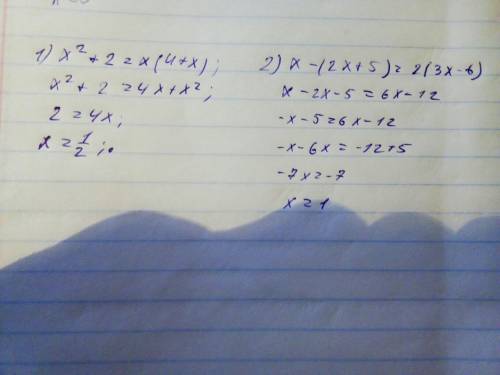 1) x² + 2 = x(4+x);
x² + 2 = 4x + x²;
2 = 4x;
x = 1/2;
2) x - (2x+5) = 2(3x-6)
x - 2x - 5 = 6x - 12
-x - 5 = 6x - 12
-x - 6x = -12 + 5
-7x = -7
x = 1